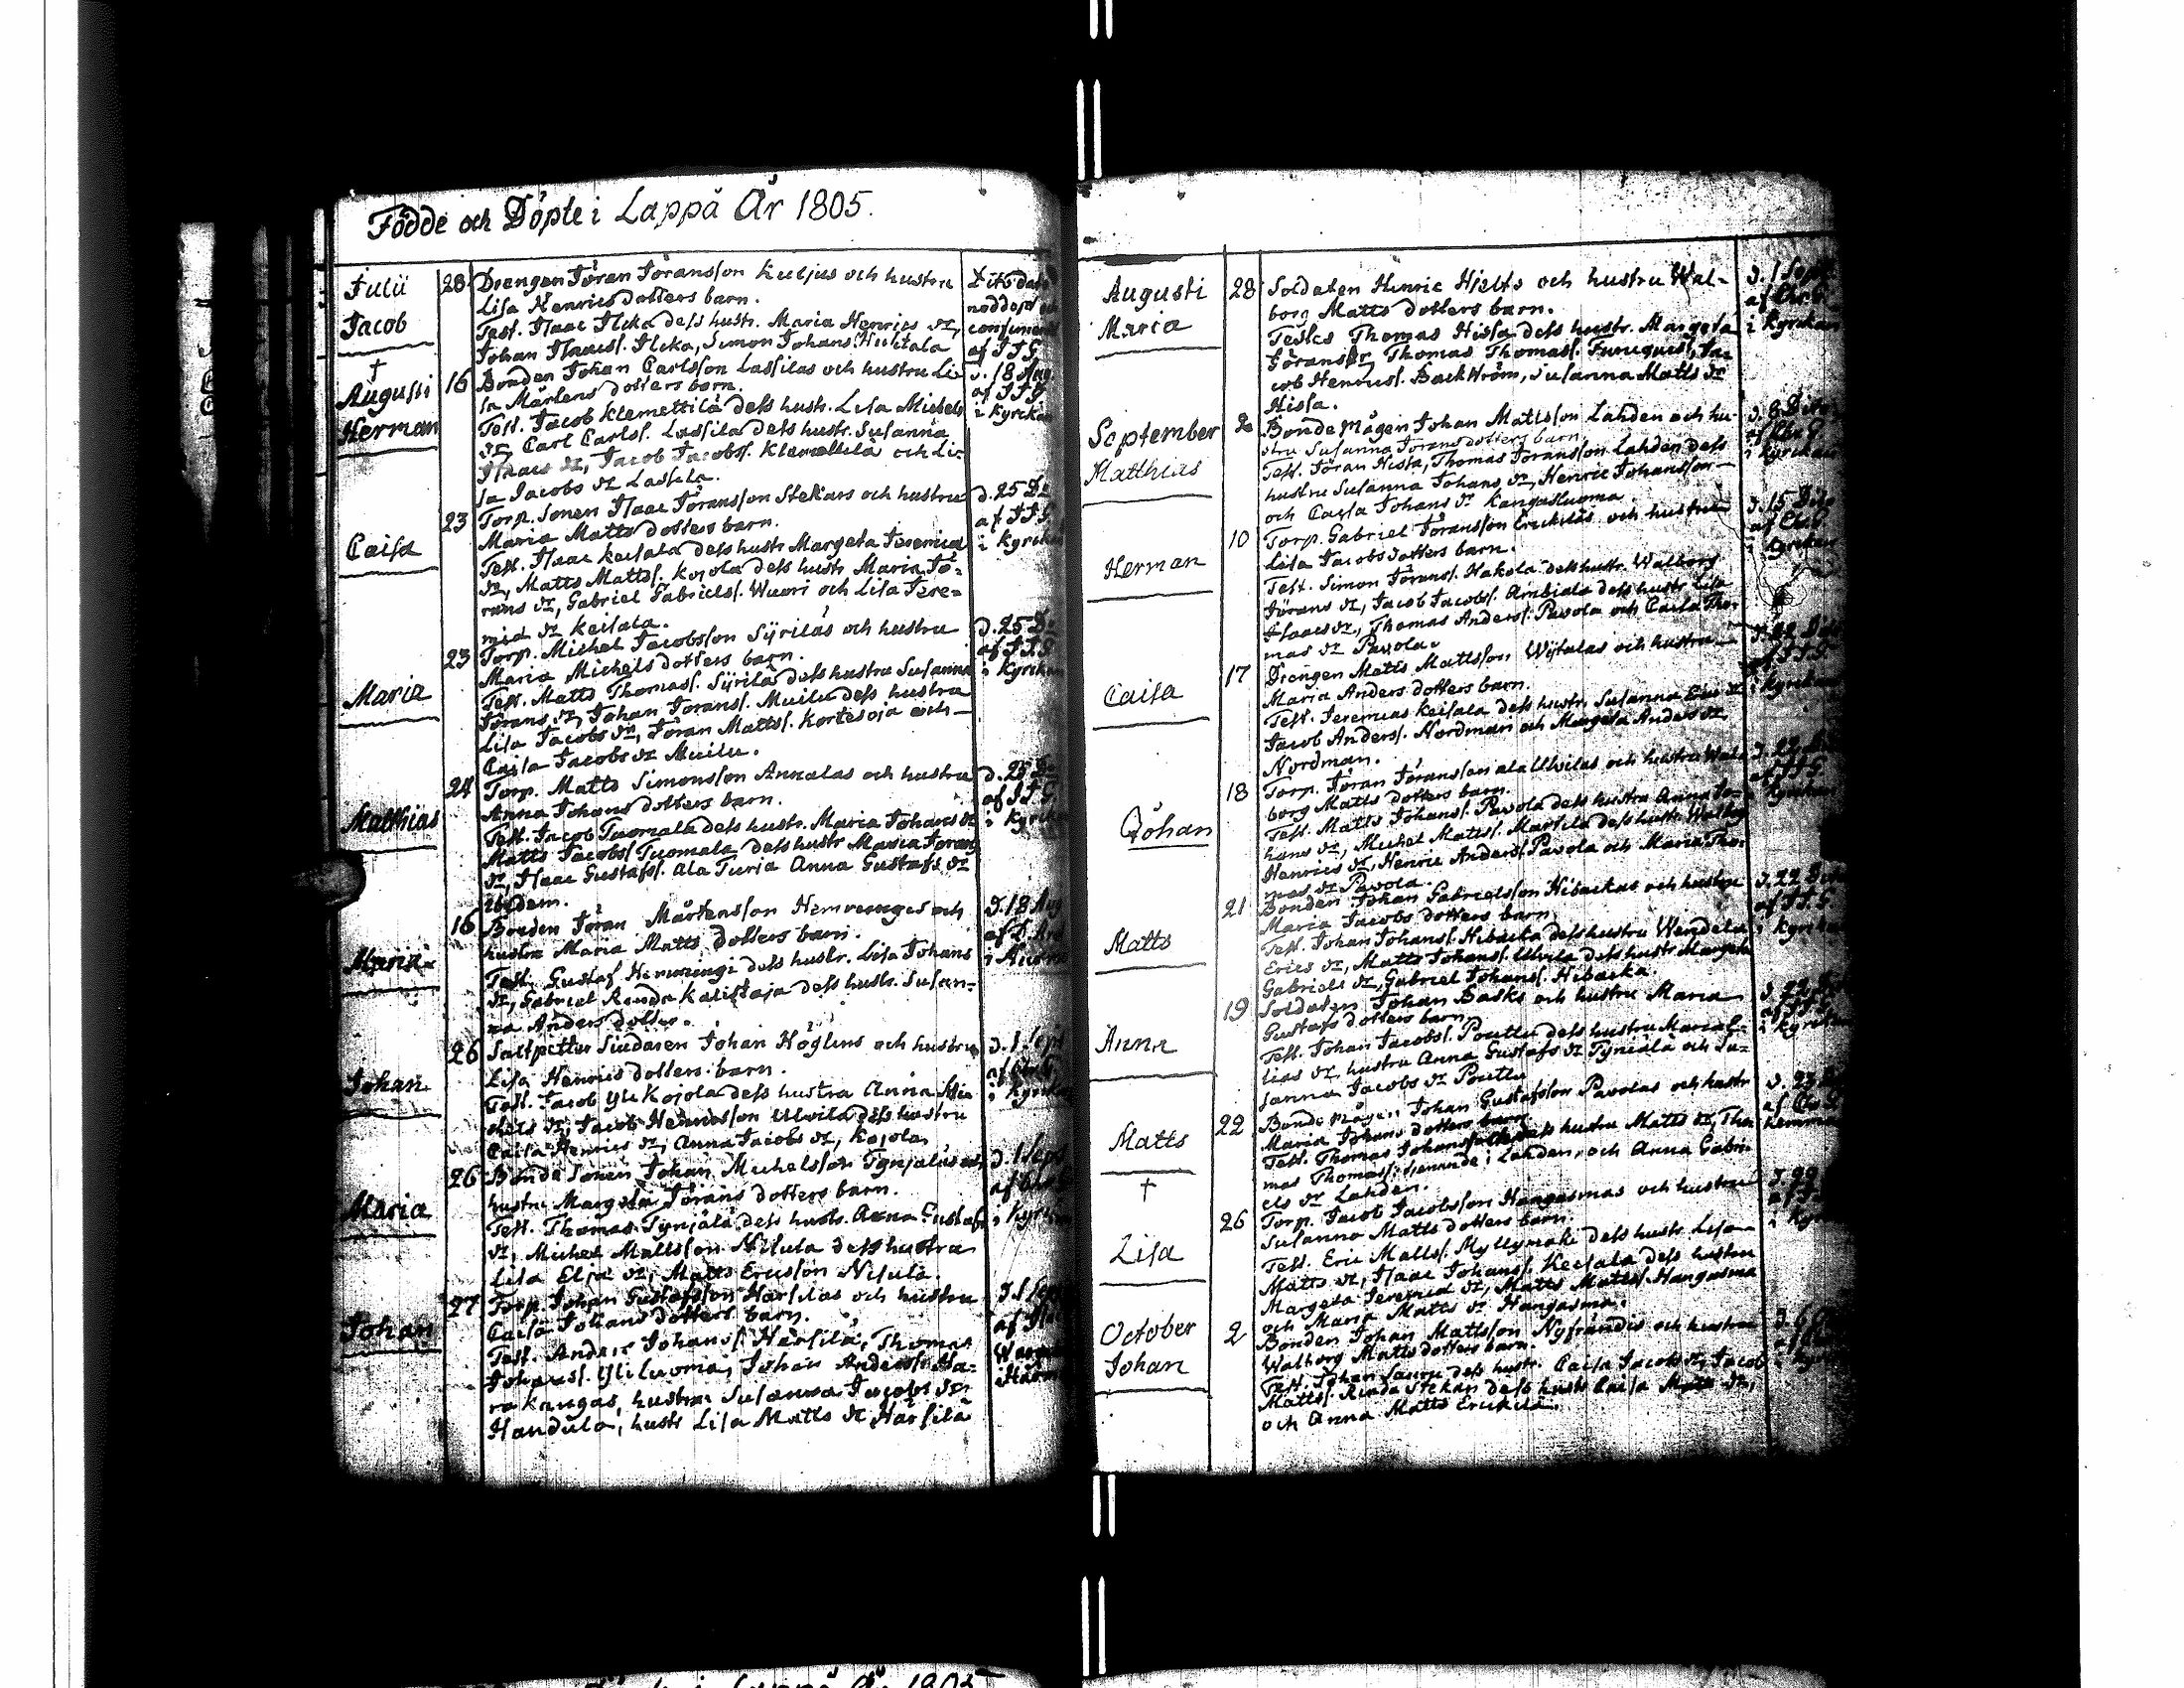 Födde och Döpte i Lappå År 1805.
Julii 28 Drengen Jöran Jöransson Kuljus och hustru
Jacob Lisa Henricsdotters barn.
Test. Isaac Ilcka dess hustr. Maria Henrics dr,
Johan Isaacss. Ilcka, Simon Johanss. Huhtala
af J J G.
†
Augusti 16 Bonden Johan Carlsson Lassilas och hustru Li- d. 18 Aug.
Herman sa Mårtens dotters barn. af J J G.
Test. Jacob Klemettilä dess hustr. Lisa Michels i Kyrckan
dr, Carl Carlss. Lassila dess hustr. Susanna
Isaacs dr, Jacob Jacobss. Klemettilä och Li-
sa Jacobs dr Lassila.
Caisa 23 Torp. Sonen Isaac Jöransson Stekars och hustru d. 25 Do
Maria Matts dotters barn. af J J G.
Test. Isaac Keisala dess hustr Margeta Jeremiæ i Kyrckan
dr, Matts Mattss. Kojola dess hustr Maria Jö-
rans dr, Gabriel Gabrielss. Wuori och Lisa Jere-
miæ dr Keisala.
Maria 23 Torp. Michel Jacobsson Syriläs och hustru d. 25 Do
Maria Michels dotters barn. af J J G
Test. Matts Thomass. Syrilä dess hustru Susanna i Kyrckan
Jörans dr, Johan Jöranss. Muilu dess hustru
Lisa Jacobs dr, Jöran Mattss. Kortesoja och
Caisa Jacobs dr Muilu.
Matthias 24 Torp. Matts Simonsson Annalas och hustru d. 25 Do
Anna Johans dotters barn. af J J G.
Test. Jacob Tuomala dess hustr. Maria Johans dr i Kyrckan
Matts Jacobss. Tuomala dess hustr Maria Jörans
dr, Isaac Gustafss. Ala Turja Anna Gustafs dr
ibidem.
Maria 16 Bonden Jöran Mårtensson Hemminges och d. 18 Aug
hustru Maria Matts dotters barn.
Test. Gustaf Hemmingi dess hustr. Lisa Johans
dr, Gabriel Renda Kallistaja dess hustr. Susan-
na Anders dotter.
Johan 26 Saltpetter Siudaren Johan Höglins och hustru d. 1 Sept
Lisa Henrics dotters barn.
Test. Jacob Yli Kojola dess hustru Anna Mi- i Kyrckan
chels dr, Jacob Henricsson Ulvila dess hustru
Caisa Henrics dr, Anna Jacobs dr, Kojola.
Maria 26 Bonde Sonen Johan Michelsson Tynjäläs och d. 1 Sept
hustru Margeta Jörans dotters barn.
Test. Thomas Tynjälä dess hustr. Anna Gustafs i Kyrckan
dr, Michel Mattsson Nisula dess hustru
Lisa Eliæ dr, Matts Ericsson Nisula.
Johan 27 Torp. Johan Gustafsson Härsiläs och hustru d. 1 Sept
Caisa Johans dotters barn.
Test. Anders Johanss. Härsilä, Thomas
Johanss. Yliluoma, Johan Anderss. Ha-
rakangas, hustru Susanna Jacobs dr
Handula, hustr Lisa Matts dr Härsilä
Augusti 28 Soldaten Henric Hjelts och hustru Wal- d. 1 Sept.
Maria borg Matts dotters barn. af Chr. G.
Testes Thomas Hissa dess hustr. Margeta i Kyrckan
Jörans dr, Thomas Thomass. Funiquist, Ja-
cob Henricss. Backström, Susanna Matts dr
Hissa.
September 2 Bonde Mågen Johan Mattsson Lahden och hu- d. 8 Dito
Matthias stru Susanna Jörans dotters barn. af Chr. G.
Test. Jöran Hissa, Thomas Jöransson Lahden dess i Kyrckan
hustru Susanna Johans dr, Henric Johansson
och Caisa Johans dr Kangasluoma.
Herman 10 Torp. Gabriel Jöransson Erickiläs och hustru d. 15 Dito
Lisa Jacobs dotters barn. af Chr. G.
Test. Simon Jöranss. Hakola dess hustr. Walborg i Kyrckan
Jörans dr, Jacob Jacobss. Ambiala dess hustr Lisa
Isaacs dr, Thomas Anderss. Pavola och Caisa Tho-
mas dr Pavola.
Caisa 17 Drengen Matts Mattsson Wijtalas och hustru d. 22 Dito
Maria Anders dotters barn. af J J G
Test. Jeremias Keisala dess hustr. Susanna Eric dr i Kyrckan
Jacob Anderss. Nordman och Margeta Anders dr
Nordman.
Johan 18 Torp. Jöran Jöransson ala Ulvilas och hustru Wal- d. 22 Dito
borg Matts dotters barn. af J J G.
Test. Matts Johanss. Pavola dess hustru Anna Jo- i Kyrckan
hans dr, Michel Mattss. Marttila dess hustr Walborg
Henrics dr, Henric Anderss. Pavola och Maria Tho-
mas dr Pavola.
Matts 21 Bonden Johan Gabrielsson Hibackas och hustru d. 22 Dito
Maria Jacobs dotters barn. af J J G.
Test. Johan Johanss. Hibacka dess hustru Wendela i Kyrckan
Erics dr, Matts Johanss. Ulvila dess hustr Margeta
Gabriels dr, Gabriel Johanss. Hibacka.
Anna 19 Soldaten Johan Basks och hustru Maria d. 22 Dito
Gustafs dotters barn. af J J G
Test. Johan Jacobss. Pouttu dess hustru Maria E- i Kyrckan
lias dr, hustru Anna Gustafs dr Tynjälä och Su-
sanna Jacobs dr Pouttu
Matts 22 Bonde Mågen Johan Gustafsson Pavolas och hustr d. 23
Maria Johans dotters barn. af Chr. G.
Test. Thomas Johanss. dess hustru Matts dr, Tho- hemma
mas Thomass. tjenande i Lahden, och Anna Gabri-
els dr Lahden.
†
Lisa 26 Torp. Jacob Jacobsson Hangasmas och hustru d. 29
Susanna Matts dotters barn.
Test. Eric Mattss. Myllymäki dess hustr. Lisa
Matts dr, Isaac Johanss. Keisala dess hustru
Margeta Jeremiæ dr, Matts Mattss. Hangasma
och Maria Matts dr Hangasma.
October 2 Bonden Johan Mattsson Nyfrändis och hustru d. 6
Johan Walborg Matts dotters barn.
Test. Johan Sauru dess hustr. Caisa Jacobs dr, Jacob
Mattss. Renda Stekar dess hustr Caisa Matts dr,
och Anna Matts Erickilä.